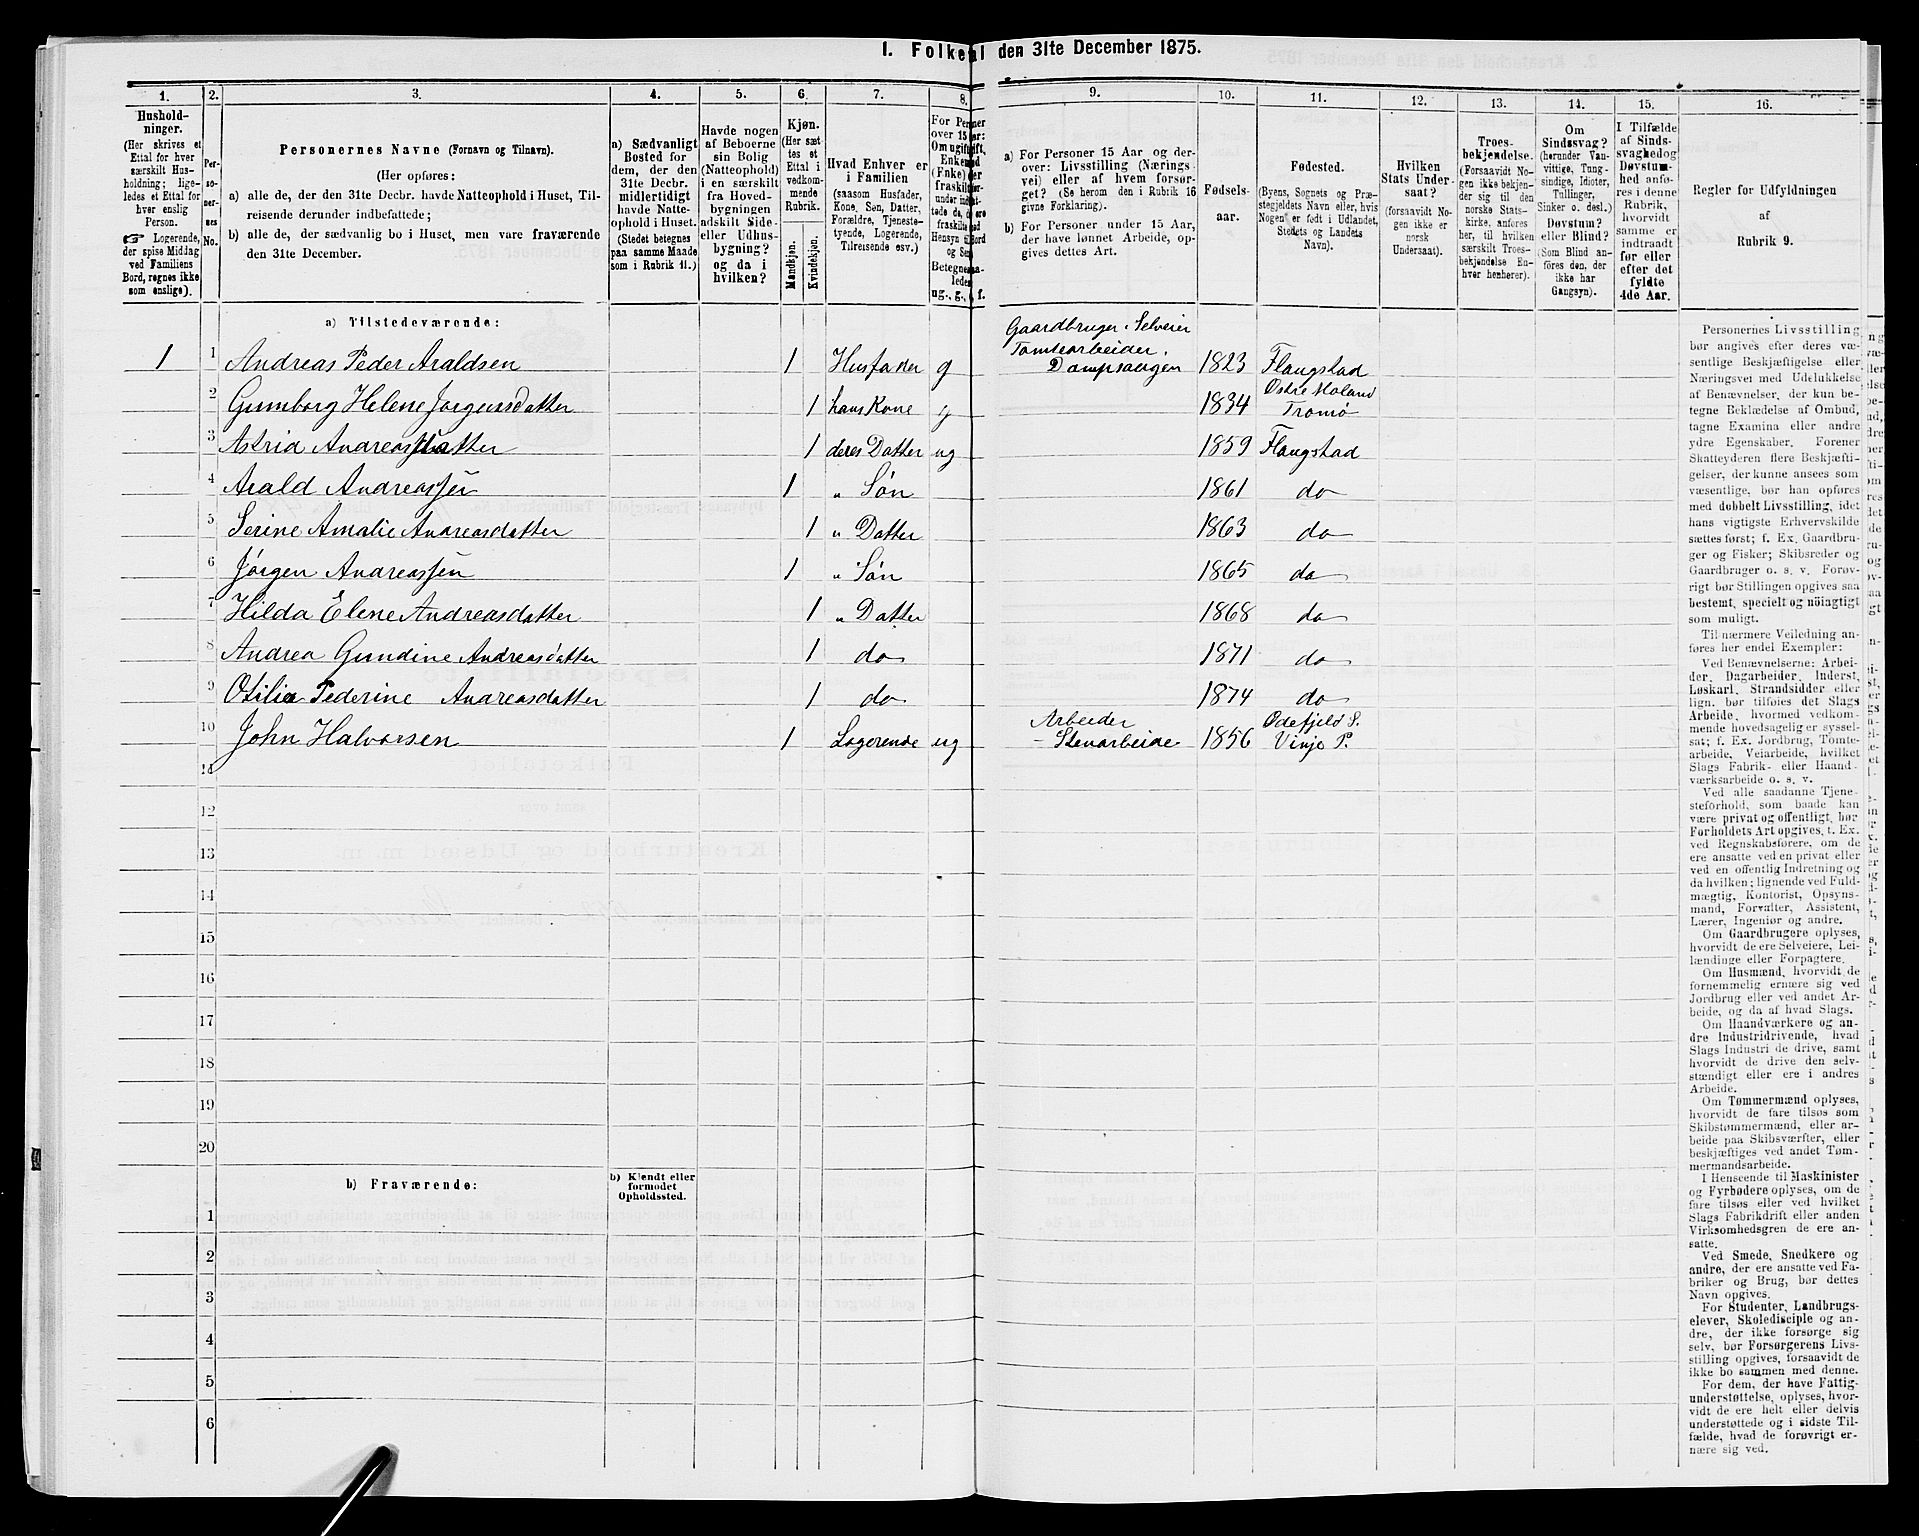 1. Folketal den 31te December 1875.
1. 2. 3. 4. 5. 6. 7. 8. 9. 10. 11. 12. 13. 14. 15. 16.
Hushold-
ninger.
(Her skrives et
Ettal for hver
særskilt Hus-
holdning; lige-
ledes et Ettal for
hver enslig
Person.
☞ Logerende,
der spise Middag
ved Familiens
Bord, regnes ikke
som enslige).
Per-
so-
ner-
nes
No.
Personernes Navne (Fornavn og Tilnavn).
(Her opføres:
a) alle de, der den 31te Decbr. havde Natteophold i Huset, Til-
reisende derunder indbefattede;
b) alle de, der sædvanlig bo i Huset, men vare fraværende
den 31te December.
a) Sædvanligt
Bosted for
dem, der den
31te Decbr.
midlertidigt
havde Natte-
ophold i Huset.
(Stedet betegnes
paa samme Maade
som i Rubrik 11.)
Havde nogen
af Beboerne
sin Bolig
(Natteophold)
i en særskilt
fra Hoved-
bygningen
adskilt Side-
eller Udhus-
bygning?
og da i
hvilken?
Kjøn.
(Her sæt-
tes et
Ettal i
vedkom-
mende
Rubrik.
Mandkjøn.
Kvindekjøn.
Hvad Enhver er
i Familien
(saasom Husfader,
Kone, Søn, Datter,
Forældre, Tjeneste-
tyende, Logerende,
Tilreisende osv.)
For Personer
over 15 Aar:
Om ugift, gift,
ug., g., f.
a) For Personer 15 Aar og der-
over: Livsstilling (Nærings-
vei) eller af hvem forsør-
get? (Se herom den i Rubrik 16
givne Forklaring).
b) For Personer under 15 Aar,
der have lønnet Arbeide, op-
gives dettes Art.
Fødsels-
aar.
Fødested.
(Byens, Sognets og Præ-
stegjeldets Navn eller, hvis
Nogen er født i Udlandet,
Stedets og Landets
Navn).
Hvilken
Stats Under-
saat?
(forsaavidt No-
gen ikke er
norsk
Undersaat).
Troes-
bekjendelse.
(Forsaavidt No-
gen ikke bekjen-
der sig til den
norske Stats-
kirke, anføres
her, til hvilken
særskilt Troes-
bekjendelse En-
hver henhører).
Om
Sindssvag?
(herunder Van-
vittige, Tung-
sindige, Idioter,
Tullinger,
Sinker o. desl.)
Døvstum?
eller Blind?
(Som Blind an-
føres den, der
ikke har
Gangsyn).
I Tilfælde
af Sinds-
svaghed og
Døvstum-
hed anfø-
res i denne
Rubrik,
hvorvidt
samme er
indtraadt
før eller
efter det
fyldte
4de Aar.
Regler for Udfyldningen
af
Rubrik 9.
a) Tilstedeværende:
1 1 Andreas Peder Araldsen 1 Husfader g Gaardbruger, Selveier Tomtearbeider. Dampsaugen 1823 Flaugstad
2 Gunnborg Helene Jørgensdatter 1 hans Kone g 1834 Østre Moland Tromø
3 Astrid Andreasdatter 1 deres Datter ug 1859 Flaugstad
4 Arald Andreassen 1 " Søn 1861 do
5 Serine Amalie Andreasdatter 1 " Datter 1863 do
6 Jørgen Andreassen 1 " Søn 1865 do
7 Hilda Elene Andreasdatter 1 " Datter 1868 do
8 Andrea Gundine Andreasdatter 1 do 1871 do
9 Otilie Pederine Andreasdatter 1 do 1874 do
10 John Halvorsen 1 Logerende ug Arbeider - Stenarbeide 1856 Ødefjeld S. Vinje P.
11
12
13
14
15
16
17
18
19
20
b) Fraværende:
b) Kjendt eller
formodet
Opholdssted.
1
2
3
4
5
6
Personernes Livsstilling
bør angives efter deres væ-
sentlige Beskjæftigelse eller
Næringsvei med Udelukkelse
af Benævnelser, der kun be-
tegne Beklædelse af Ombud,
tagne Examina eller andre
ydre Egenskaber. Forener
Skatteyderen flere Beskjæfti-
gelser, der kunne ansees som
væsentlige, bør han opføres
med dobbelt Livsstilling, idet
hans vigtigste Erhvervskilde
sættes først; f. Ex. Gaardbru-
ger og Fisker; Skibsreder og
Gaardbruger o. s. v. Forøv-
rigt bør Stillingen opgives saa
bestemt, specielt og nöiagtigt
som muligt.
Til nærmere Veiledning an-
føres her endel Exempler:
Ved Benævnelserne: Arbei-
der, Dagarbeider, Inderst,
Løskarl, Strandsidder eller
lign. bør tilføies det Slags
Arbeide, hvormed vedkom-
mende hovedsagelig er syssel-
sat; f. Ex. Jordbrug, Tømte-
arbeide, Veiarbeide, hvilket
Slags Fabrik- eller Haand-
værksarbeide o. s. v.
Ved alle saadanne Tjene-
steforhold, som baade kan
være privat og offentligt, bør
Forholdets Art opgives, t. Ex.
ved Regnskabsførere, om de
ere ansatte ved en privat eller
ved en offentlig Indretning og
da hvilken; lignende ved Fuld-
mægtig, Kontorist, Opsyns-
mand, Forvalter, Assistent,
Lærer, Ingeniør og andre.
Om Gaardbrugere oplyses,
hvorvidt de ere Selveiere, Lei-
lændinge eller Forpagtere.
Om Husmænd, hvorvidt de
fornemmelig ernære sig ved
Jordbrug eller ved andet Ar-
beide, og da af hvad Slags.
Om Haandværkere og an-
dre Industridrivende, hvad
Slags Industri de drive, samt
hvorvidt de drive den selv-
stændigt eller ere i andres
Arbeide.
Om Tømmermænd oplyses,
hvorvidt de fare tilsøs som
Skibstømmermænd, eller ar-
beide paa Skibsværfter, eller
beskjæftiges ved andet Tøm-
mermandsarbeide.
I Henseende til Maskinister
og Fyrbødere oplyses, om de
fare tilsøs eller ved hvilket
Slags Fabrikdrift eller anden
Virksomhedsgren de ere an-
satte.
Ved Smede, Snedkere og
andre, der ere ansatte ved Fa-
briker og Brug, bør dettes
Navn opgives.
For Studenter, Landbrugs-
elever, Skoledisciple og an-
dre, der ikke forsørge sig
selv, bør Forsørgerens Livs-
stilling opgives, forsaavidt de
ikke bo sammen med denne.
For dem, der have Fattig-
understøttelse, oplyses, hvor-
vidt de ere helt eller delvis
understøttede og i sidste Til-
fælde, hvad de forøvrigt er-
nære sig ved.